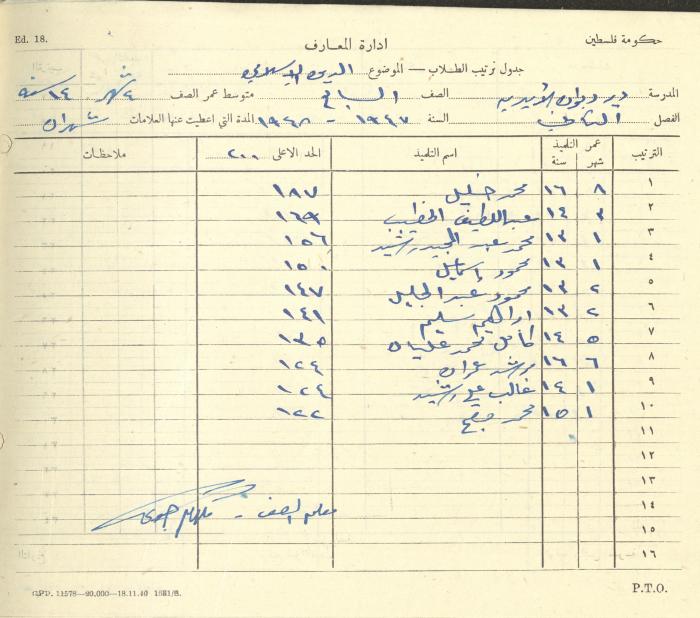 Ed. 18.
حكومة فلسطين
ادارة المعارف
جدول ترتيب الطلاب — الموضوع الدين الاسلامي
المدرسة دير ديوان الأميرية الصف السابع متوسط عمر الصف ١٤ سنة ٤ شهر
الفصل الثاني السنة ١٩٤٧ - ١٩٤٨ المدة التي اعطيت عنها العلامات شهران
الترتيب عمر التلميذ شهر سنة اسم التلميذ الحد الاعلى ٢٠٠ ملاحظات
١ ٨ ١٦ محمد خليل ١٨٧
٢ ٣ ١٤ عبد اللطيف الخطيب ١٦٩
٣ ١ ١٣ محمد عبد المجيد رشيد ١٥٦
٤ ١ ١٣ محمود إسماعيل ١٥٠
٥ ٢ ١٣ محمود عبد الجليل ١٤٧
٦ ٢ ١٣ ابراهيم سليم ١٤١
٧ ٥ ١٤ كامل محمد عليان ١٣٥
٨ ٦ ١٦ مرشد عمران ١٢٤
٩ ١ ١٤ غالب علي رشيد ١٢٤
١٠ ١ ١٥ محمد ١٢٢
١١
١٢
١٣
١٤ معلم الصف -
١٥
١٦
G.P.D. 11578—20,000—18.11.40 1681/B.
P.T.O.